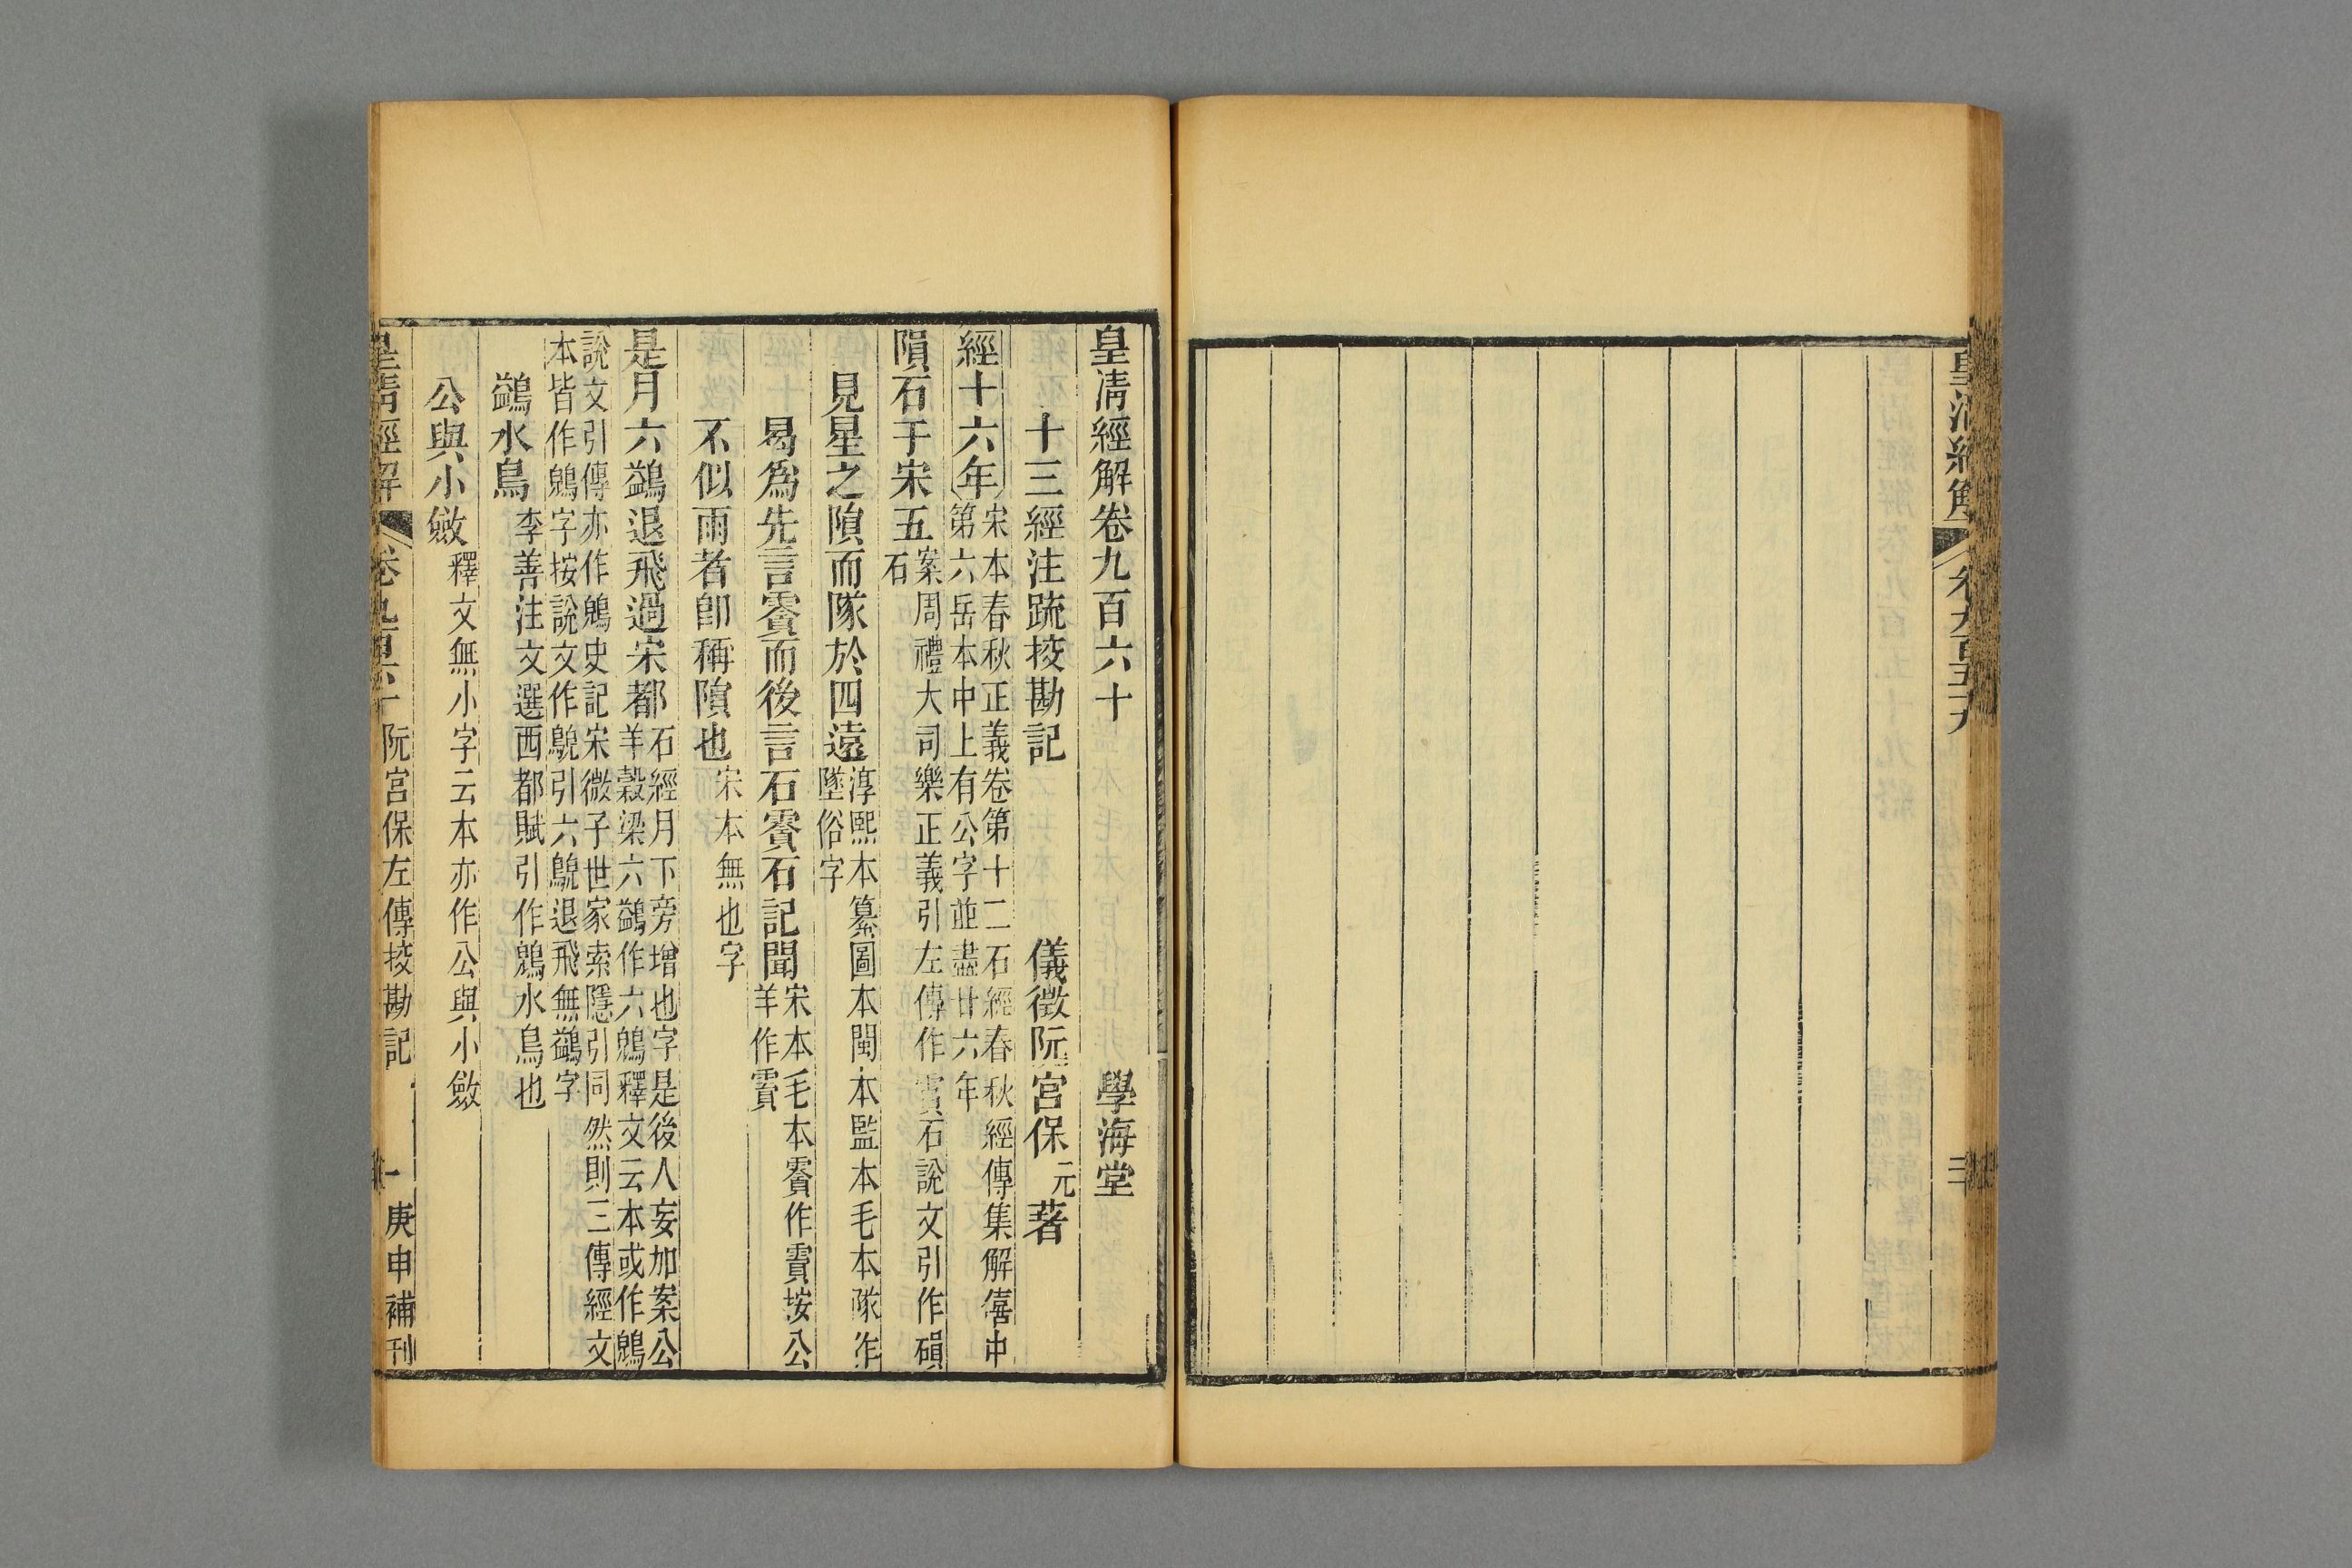 皇清經解 卷九百五十九 三
皇清經解卷九百六十 學海堂
十三經注疏挍勘記 儀徵阮宮保元著
經十六年
宋本春秋正義卷第十二石經春秋經傳集解僖中
第六岳本中上有公字並盡廿六年
隕石于宋五
案周禮大司樂正義引左傳作霣石說文引作磒
石
見星之隕而隊於四遠
淳熙本纂圖本閩本監本毛本隊作
墜俗字
曷爲先言霣而後言石霣石記聞
宋本毛本霣作賈按公
羊作賈
不似雨者卽稱隕也
宋本無也字
是月六鷁退飛過宋都
石經月下旁增也字是後人妄加案公
羊穀梁六鷁作六鶂釋文云本或作鶂
說文引傳亦作鶂史記宋微子世家索隱引同然則三傳經文
本皆作鶂字按說文作鶃引六鶃退飛無鷁字
鷁水鳥
李善注文選西都賦引作鶂水鳥也
公與小斂
釋文無小字云本亦作公與小斂
皇清經解 卷九百六十 阮宮保左傳挍勘記 一 庚申補刊